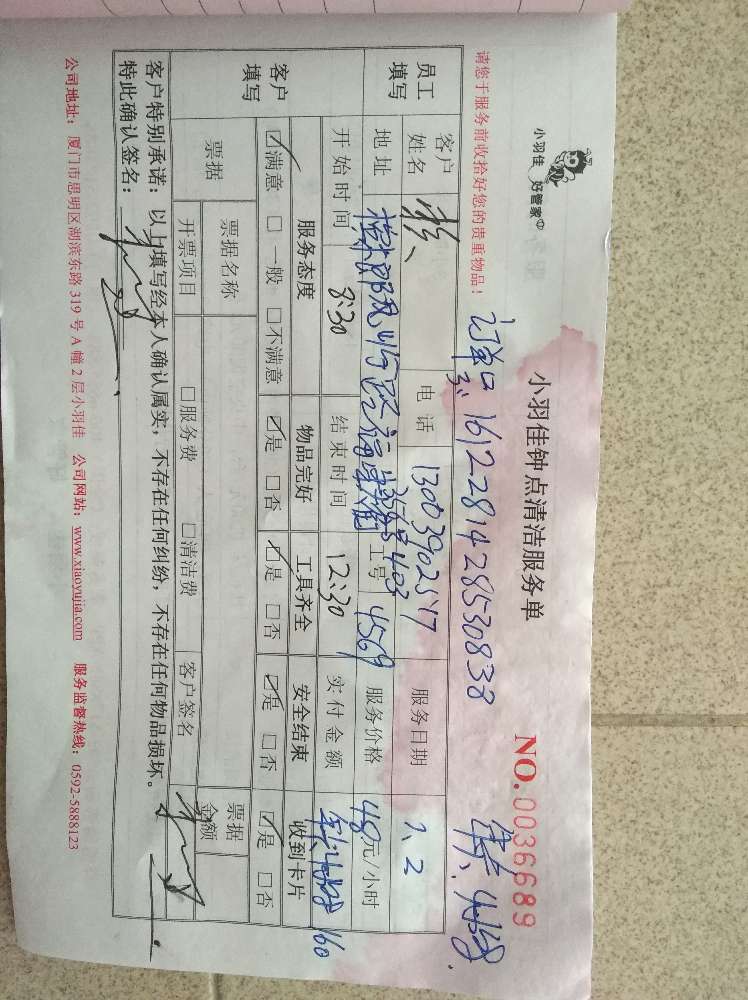 小羽佳 好管家
小羽佳钟点清洁服务单
NO.0036689
请您于服务前收拾好您的贵重物品！
1612281428530838
员工填写
客户姓名
电话 13003902517
服务日期 1、2
地址
403
工号 4569
服务价格 48元/小时
开始时间 8:30
结束时间 12:30
实付金额 160
客户填写
服务态度 物品完好 工具齐全 安全结束 收到卡片
☑满意 □一般 □不满意 ☑是 □否 ☑是 □否 ☑是 □否 ☑是 □否
票据
票据名称
票据金额
开票项目 □服务费 □清洁费 客户签名
客户特别承诺：以上填写经本人确认属实，不存在任何纠纷，不存在任何物品损坏。
特此确认签名：
公司地址：厦门市思明区湖滨东路 319 号 A 幢 2 层小羽佳 公司网站：www.xiaoyujia.com 服务监督热线：0592-5888123